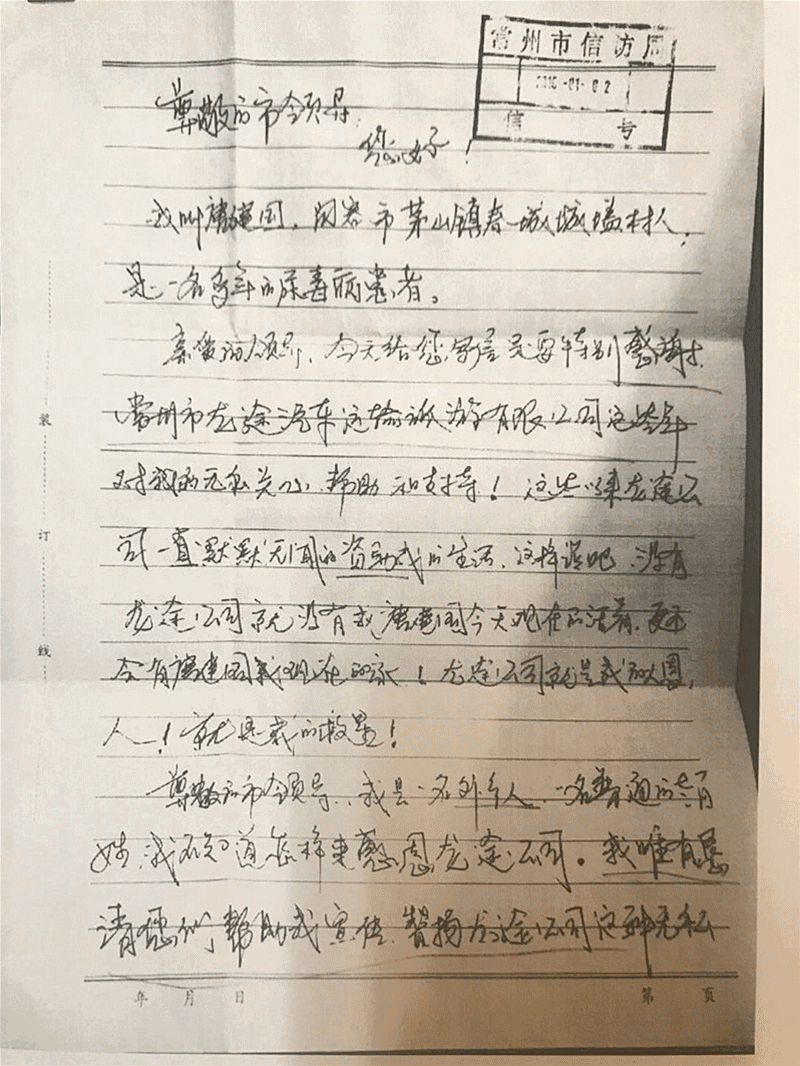 常州市信访局
-01-02
信 号
尊敬的市领导
您好！
我叫建国，句容市茅山镇春城城墙村人，
是一名多年的尿毒病患者。
亲爱的领导，今天给您写信是要特别感谢
常州市龙途汽车运输旅游有限公司这些年
对我的无私关心、帮助和支持！这些年来龙途公
司一直默默无闻的资助我的生活，这样说吧，没有
龙途公司就没有我建国今天现在的活着，更不
会有建国我现在的家！龙途公司就是我的恩
人！就是我的救星！
尊敬的市领导，我是一名外乡人，一名普通的百
姓，我不知道怎样来感恩龙途公司。我唯有恳
请您们帮助我宣传、赞扬龙途公司这种无私
装
订
线
年 月 日
第 页